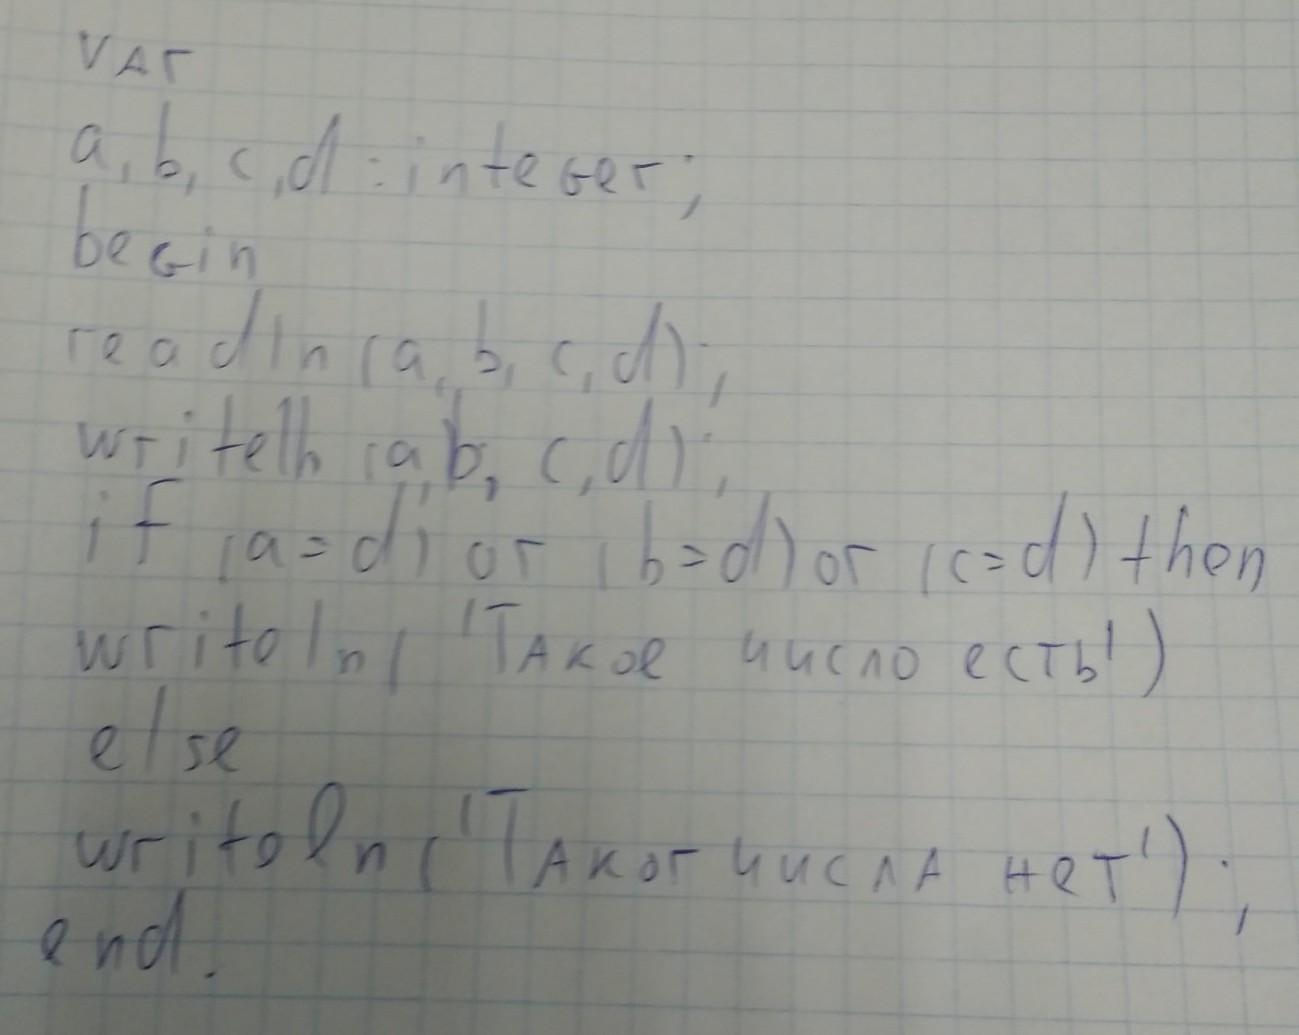 var
a, b, c, d : integer;
begin
readln (a, b, c, d);
writeln (a, b, c, d);
if (a = d) or (b = d) or (c = d) then
writeln ( 'Такое число есть' )
else
writeln ( 'Таког числа нет' );
end.